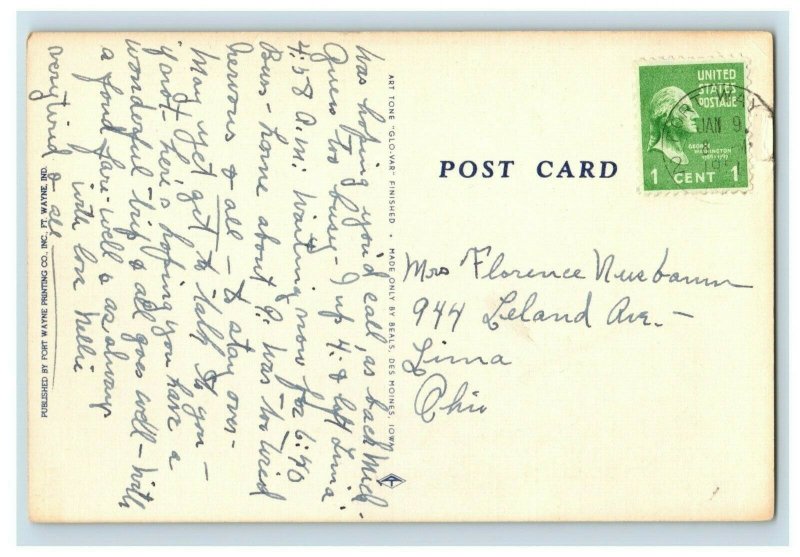 Was hoping you'd call, as back Wed.
Guess too busy - I up 4: & left Lima
4:58 A.M. Waiting now for 6:40
Bus - home about 9: Was too tired
nervous & all - to stay over -
May yet get to talk to you -
if not - here's hoping you have a
wonderful trip & all goes well - With
a fond fare-well & as always
with love Nellie
very tired & all
PUBLISHED BY FORT WAYNE PRINTING CO., INC. FT. WAYNE, IND.
ART TONE "GLO-VAR" FINISHED • MADE ONLY BY BEALS, DES MOINES, IOWA
POST CARD
UNITED
STATES
POSTAGE
GEORGE
WASHINGTON
1 CENT 1
FORT WAY
JAN 9
Mrs Florence Nusbaum
944 Leland Ave. -
Lima
Ohio